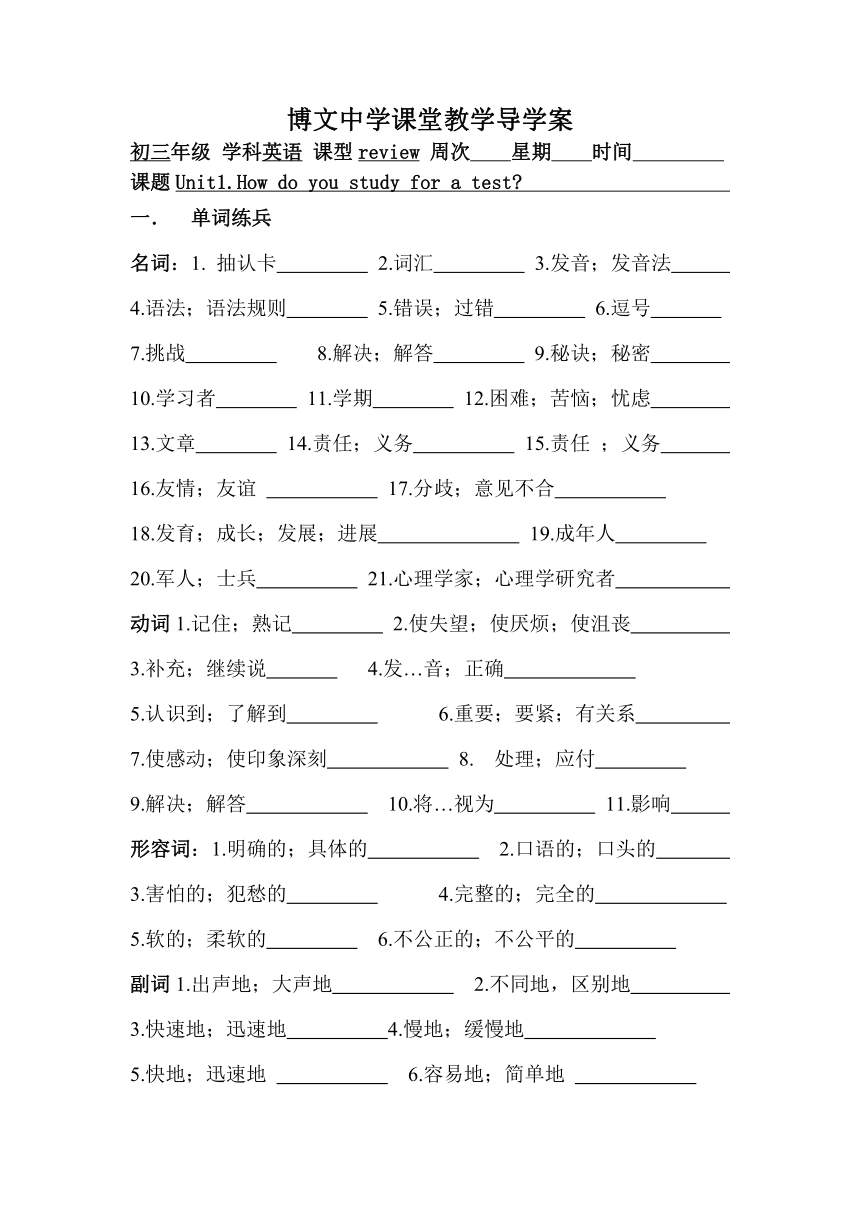 博文中学课堂教学导学案
初三年级 学科英语 课型review 周次____星期____时间_________
课题Unit1.How do you study for a test?
一． 单词练兵
名词：1. 抽认卡_________ 2.词汇_________ 3.发音；发音法______
4.语法；语法规则________ 5.错误；过错_________ 6.逗号_______
7.挑战_________ 8.解决；解答_________ 9.秘诀；秘密________
10.学习者________ 11.学期________ 12.困难；苦恼；忧虑________
13.文章________ 14.责任；义务__________ 15.责任 ；义务_______
16.友情；友谊 ___________ 17.分歧；意见不合___________
18.发育；成长；发展；进展______________ 19.成年人_________
20.军人；士兵__________ 21.心理学家；心理学研究者___________
动词1.记住；熟记_________ 2.使失望；使厌烦；使沮丧__________
3.补充；继续说_______ 4.发…音；正确_____________
5.认识到；了解到_________ 6.重要；要紧；有关系_________
7.使感动；使印象深刻____________ 8. 处理；应付_________
9.解决；解答____________ 10.将…视为__________ 11.影响______
形容词：1.明确的；具体的___________ 2.口语的；口头的_______
3.害怕的；犯愁的_________ 4.完整的；完全的_____________
5.软的；柔软的_________ 6.不公正的；不公平的__________
副词1.出声地；大声地____________ 2.不同地，区别地__________
3.快速地；迅速地__________4.慢地；缓慢地_____________
5.快地；迅速地 ___________ 6.容易地；简单地 ____________